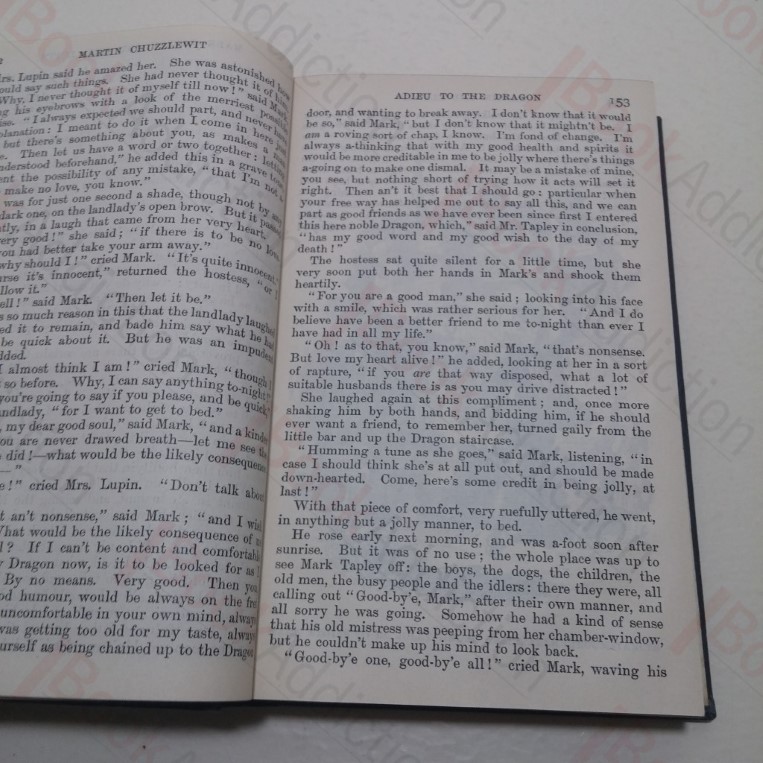 MARTIN CHUZZLEWIT
rs. Lupin said he amazed her. She was astonished how
ould say such things. She had never thought it of him
Why, I never thought of it myself till now!" said Mark
ng his eyebrows with a look of the merriest possible
ise. "I always expected we should part, and never have
planation: I meant to do it when I come in here
but there's something about you, as makes a
e. Then let us have a word or two together: letting
nderstood beforehand," he added this in a grave tone
ent the possibility of any mistake, "that I'm not
make no love, you know."
was for just one second a shade, though not by any
dark one, on the landlady's open brow. But it passed
ntly, in a laugh that came from her very heart.
ery good!" she said; "if there is to be no love
you had better take your arm away."
why should I!" cried Mark. "It's quite innocent."
urse it's innocent," returned the hostess, "or I
llow it."
ell!" said Mark. "Then let it be."
s so much reason in this that the landlady laughed
ed it to remain, and bade him say what he had
be quick about it. But he was an impudent
dded.
I almost think I am!" cried Mark, "though I
so before. Why, I can say anything to-night!"
you're going to say if you please, and be quick,"
ndlady, "for I want to get to bed."
, my dear good soul," said Mark, "and a kinder
ou are never drawn breath—let me see the
did!—what would be the likely consequence
—"
e!" cried Mrs. Lupin. "Don't talk about
t an't nonsense," said Mark; "and I wish
What would be the likely consequence of
? If I can't be content and comfortable
y Dragon now, is it to be looked for as
By no means. Very good. Then you
od humour, would be always on the fret
uncomfortable in your own mind, always
was getting too old for my taste, always
urself as being chained up to the Dragon
ADIEU TO THE DRAGON 153
door, and wanting to break away. I don't know that it would
be so," said Mark, "but I don't know that it mightn't be. I
am a roving sort of chap, I know. I'm fond of change. I'm
always a-thinking that with my good health and spirits it
would be more creditable in me to be jolly where there's things
a-going on to make one dismal. It may be a mistake of mine,
you see, but nothing short of trying how it acts will set it
right. Then an't it best that I should go: particular when
your free way has helped me out to say all this, and we can
part as good friends as we have ever been since first I entered
this here noble Dragon, which," said Mr. Tapley in conclusion,
"has my good word and my good wish to the day of my
death!"
The hostess sat quite silent for a little time, but she
very soon put both her hands in Mark's and shook them
heartily.
"For you are a good man," she said; looking into his face
with a smile, which was rather serious for her. "And I do
believe have been a better friend to me to-night than ever I
have had in all my life."
"Oh! as to that, you know," said Mark, "that's nonsense.
But love my heart alive!" he added, looking at her in a sort
of rapture, "if you are that way disposed, what a lot of
suitable husbands there is as you may drive distracted!"
She laughed again at this compliment; and, once more
shaking him by both hands, and bidding him, if he should
ever want a friend, to remember her, turned gaily from the
little bar and up the Dragon staircase.
"Humming a tune as she goes," said Mark, listening, "in
case I should think she's at all put out, and should be made
down-hearted. Come, here's some credit in being jolly, at
last!"
With that piece of comfort, very ruefully uttered, he went,
in anything but a jolly manner, to bed.
He rose early next morning, and was a-foot soon after
sunrise. But it was of no use; the whole place was up to
see Mark Tapley off: the boys, the dogs, the children, the
old men, the busy people and the idlers: there they were, all
calling out "Good-by'e, Mark," after their own manner, and
all sorry he was going. Somehow he had a kind of sense
that his old mistress was peeping from her chamber-window,
but he couldn't make up his mind to look back.
"Good-by'e one, good-by'e all!" cried Mark, waving his
Book Addiction